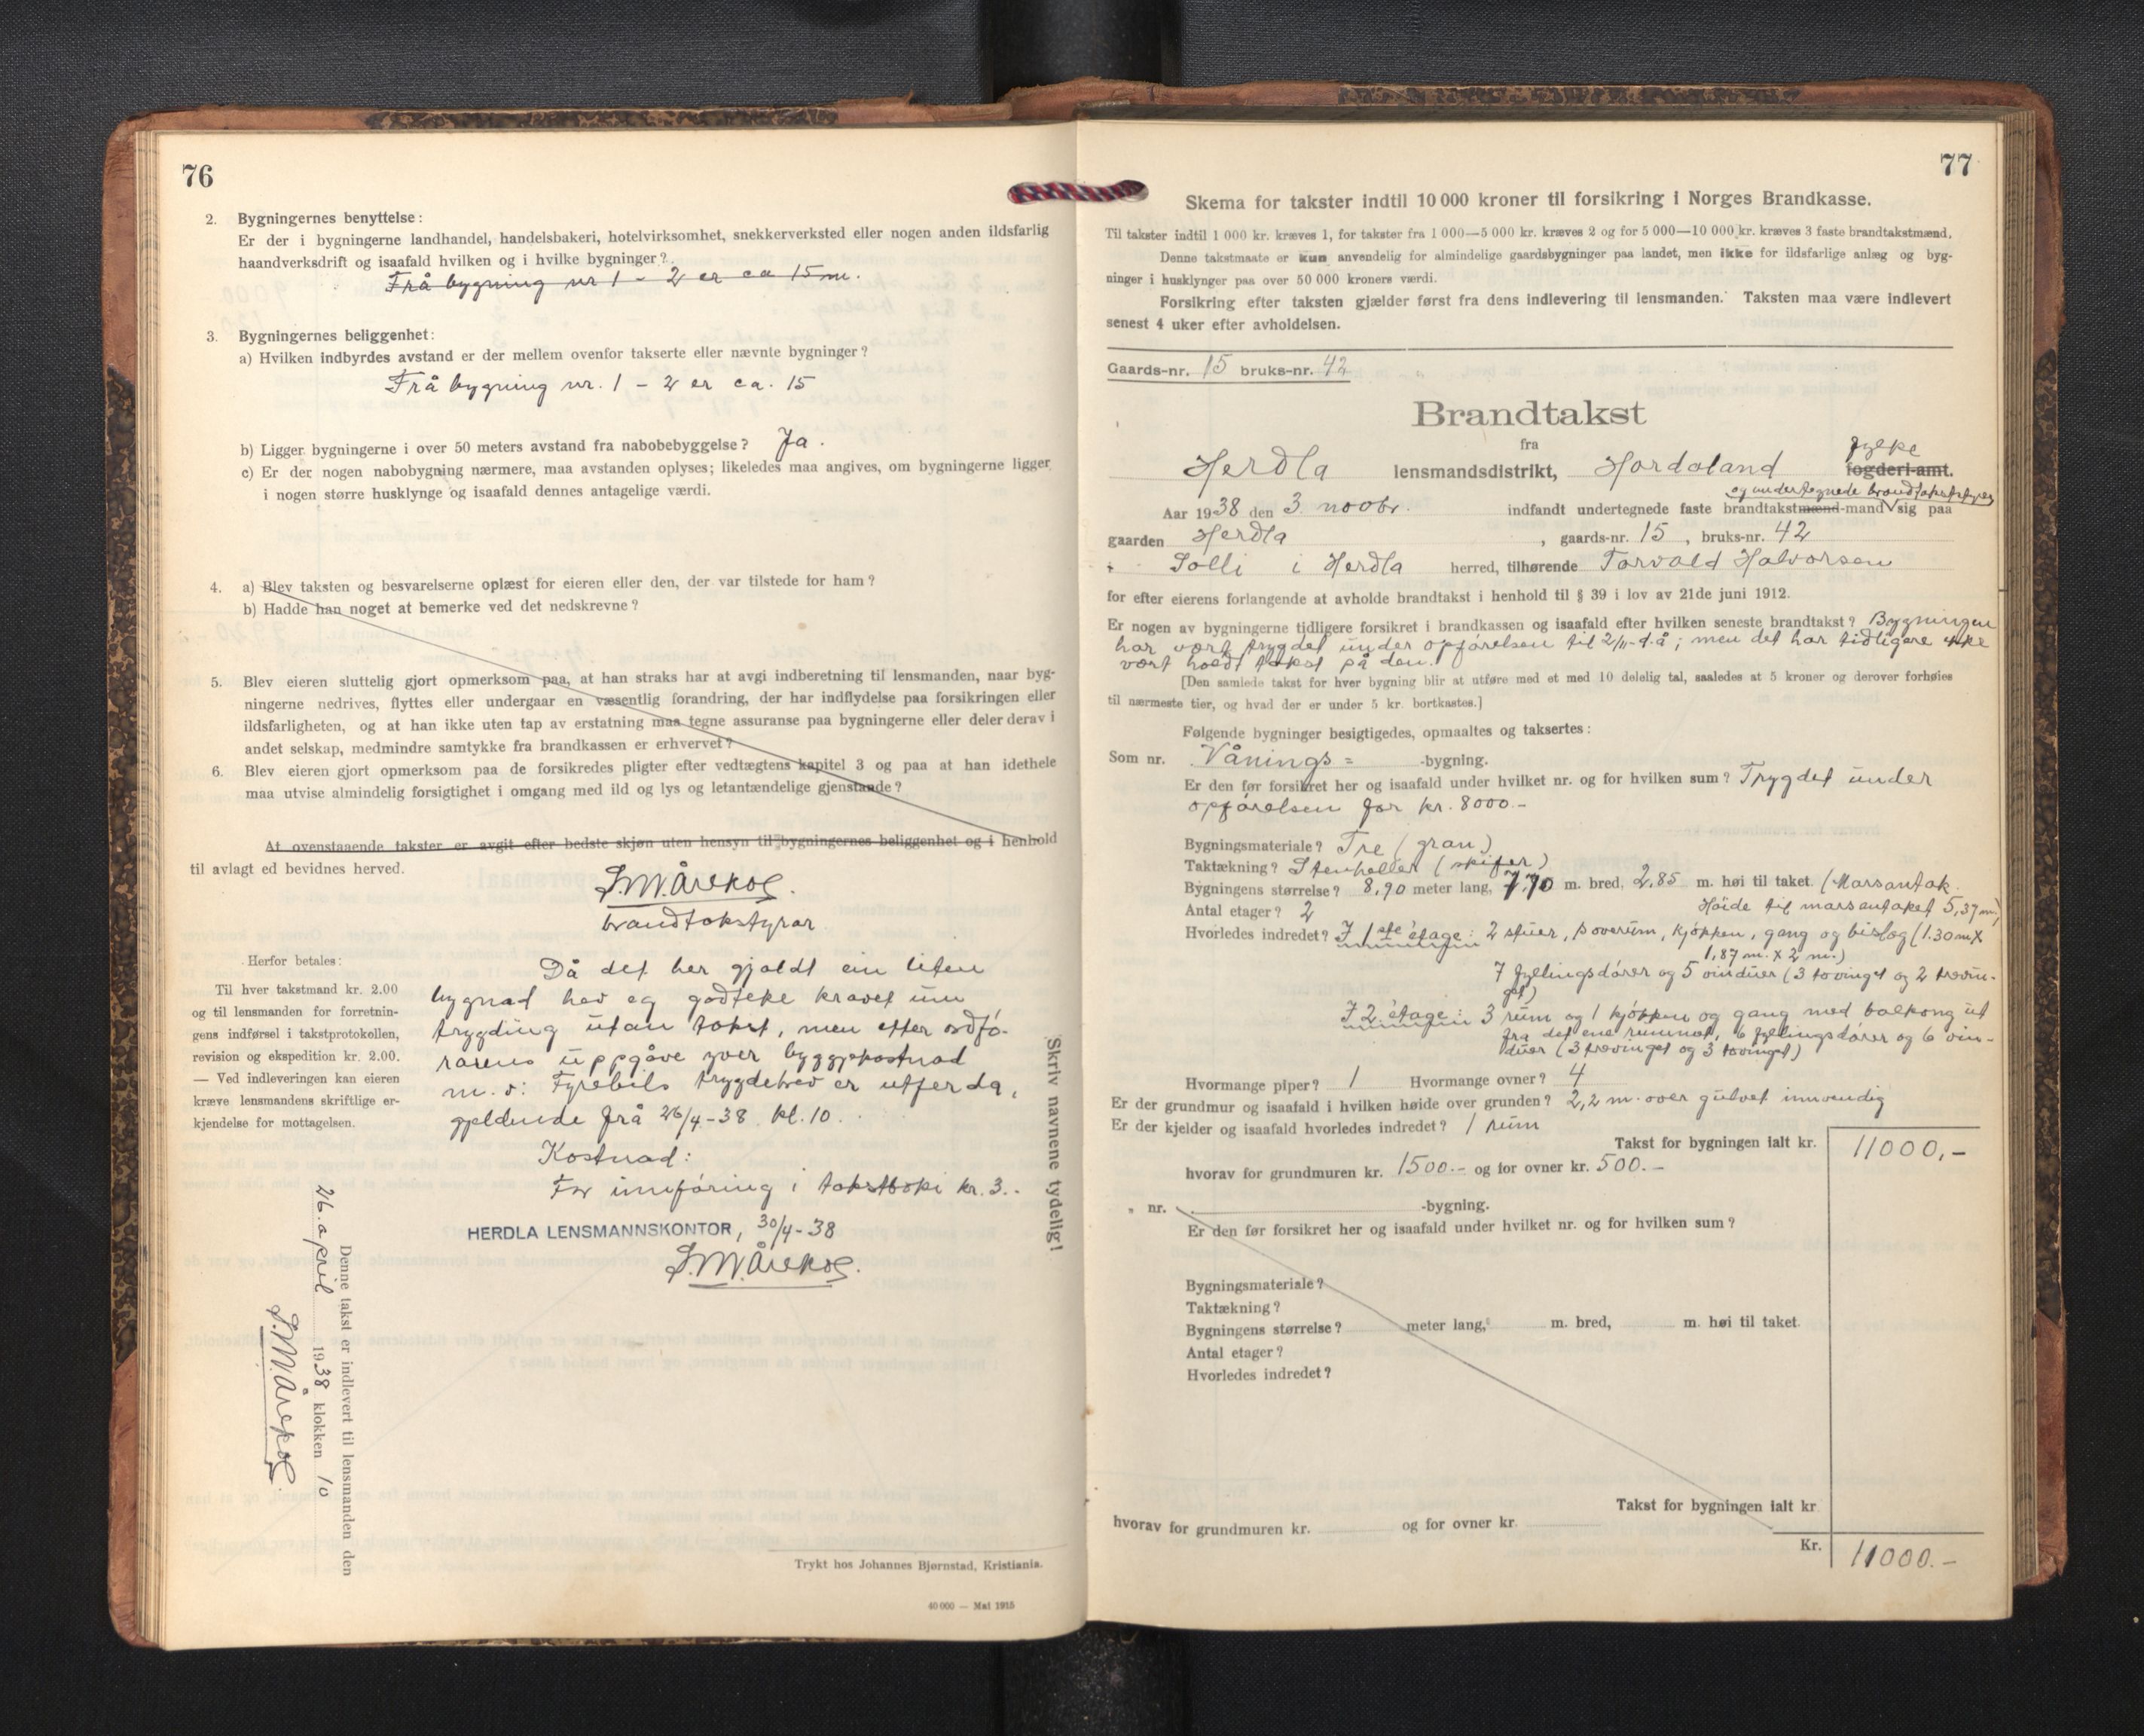 76
2. Bygningernes benyttelse:
Er der i bygningerne landhandel, handelsbakeri, hotelvirksomhet, snekkerverksted eller nogen anden ildsfarlig
haandverksdrift og isaafald hvilken og i hvilke bygninger?
Frå bygning nr 1 - 2 er ca 15 m.
3. Bygningernes beliggenhet:
a) Hvilken indbyrdes avstand er der mellem ovenfor takserte eller nævnte bygninger?
Frå bygning nr. 1 - 2 er ca. 15
b) Ligger bygningerne i over 50 meters avstand fra nabobebyggelse? Ja.
c) Er der nogen nabobygning nærmere, maa avstanden oplyses; likeledes maa angives, om bygningerne ligger
i nogen større husklynge og isaafald dennes antagelige værdi.
4. a) Blev taksten og besvarelserne oplæst for eieren eller den, der var tilstede for ham?
b) Hadde han noget at bemerke ved det nedskrevne?
5. Blev eieren sluttelig gjort opmerksom paa, at han straks har at avgi indberetning til lensmanden, naar byg-
ningerne nedrives, flyttes eller undergaar en væsentlig forandring, der har indflydelse paa forsikringen eller
ildsfarligheten, og at han ikke uten tap av erstatning maa tegne assuranse paa bygningerne eller deler derav i
andet selskap, medmindre samtykke fra brandkassen er erhvervet?
6. Blev eieren gjort opmerksom paa de forsikredes pligter efter vedtægtens kapitel 3 og paa at han idethele
maa utvise almindelig forsigtighet i omgang med ild og lys og letantændelige gjenstande?
At ovenstaaende takster er avgit efter bedste skjøn uten hensyn til bygningernes beliggenhet og i henhold
til avlagt ed bevidnes herved.
brandtakstyrar
Herfor betales:
Til hver takstmand kr. 2.00
og til lensmanden for forretnin-
gens indførsel i takstprotokollen,
revision og ekspedition kr. 2.00.
— Ved indleveringen kan eieren
kræve lensmandens skriftlige er-
kjendelse for mottagelsen.
Då det her gjeldt ein liten
bygnad hev eg godteke kravet um
trygding utan takst, men etter
uppgåve yver byggjekostnad
m. v. Fyrebils trygdebrev er utferda,
gjeldande frå 26/4-38 kl. 10.
Kostnad:
For innføring i takstboki kr. 3.-
HERDLA LENSMANNSKONTOR, 30/4-38
Skriv navnene tydelig!
Denne takst er indlevert til lensmanden den
26. april 1938 klokken 10
Trykt hos Johannes Bjørnstad, Kristiania.
40 000 — Mai 1915
77
Skema for takster indtil 10 000 kroner til forsikring i Norges Brandkasse.
Til takster indtil 1 000 kr. kræves 1, for takster fra 1 000—5 000 kr. kræves 2 og for 5 000—10 000 kr. kræves 3 faste brandtakstmænd.
Denne takstmaate er kun anvendelig for almindelige gaardsbygninger paa landet, men ikke for ildsfarlige anlæg og byg-
ninger i husklynger paa over 50 000 kroners værdi.
Forsikring efter taksten gjælder først fra dens indlevering til lensmanden. Taksten maa være indlevert
senest 4 uker efter avholdelsen.
Gaards-nr. 15 bruks-nr. 42
Brandtakst
fra
Herdla lensmandsdistrikt, Hordaland fylke fogderi-amt.
og undertegnede brandtakststyrer
Aar 1938 den 3. novbr. indfandt undertegnede faste brandtakstmænd-mand sig paa
gaarden Herdla, gaards-nr. 15, bruks-nr. 42
Solli i Herdla herred, tilhørende Torvald Halvorsen
for efter eierens forlangende at avholde brandtakst i henhold til § 39 i lov av 21de juni 1912.
Er nogen av bygningerne tidligere forsikret i brandkassen og isaafald efter hvilken seneste brandtakst? Bygningen
har vært trygdet under opførelsen til 2/11-d.å; men det har tidligere ikke
vært holdt takst på den.
[Den samlede takst for hver bygning blir at utføre med et med 10 delelig tal, saaledes at 5 kroner og derover forhøies
til nærmeste tier, og hvad der er under 5 kr. bortkastes.]
Følgende bygninger besigtigedes, opmaaltes og taksertes:
Som nr. Vånings= -bygning.
Er den før forsikret her og isaafald under hvilket nr. og for hvilken sum? Trygdet under
opførelsen for kr. 8000.-
Bygningsmateriale? Tre (gran)
Taktækning? Stenheller (skifer)
Bygningens størrelse? 8,90 meter lang, 7,70 m. bred, 2,85 m. høi til taket. (Marsantak.
Antal etager? 2 Höide til marsantaket 5,37 m.)
Hvorledes indredet? I 1ste etage: 2 stuer, soverum, kjøkken, gang og bislag (1.30 m X
1,87 m. X 2 m.)
7 fyllingsdører og 5 vinduer (3 tovinget og 2 trevin-
get)
I 2. etage: 3 rum og 1 kjøkken og gang med balkong ut
fra det ene rummet, 6 fyllingsdører og 6 vin-
duer (3 trevinget og 3 tovinget)
Hvormange piper? 1 Hvormange ovner? 4
Er der grundmur og isaafald i hvilken høide over grunden? 2,2 m. over gulvet innvendig
Er der kjelder og isaafald hvorledes indredet? 1 rum
Takst for bygningen ialt kr. 11000,-
hvorav for grundmuren kr. 1500.- og for ovner kr. 500.-
„ nr. -bygning.
Er den før forsikret her og isaafald under hvilket nr. og for hvilken sum?
Bygningsmateriale?
Taktækning?
Bygningens størrelse? meter lang, m. bred, m. høi til taket.
Antal etager?
Hvorledes indredet?
Takst for bygningen ialt kr
hvorav for grundmuren kr. og for ovner kr.
Kr. 11000.-